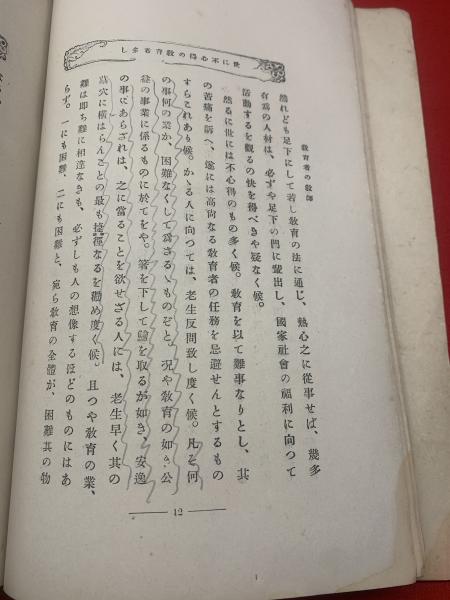 世に不心得の教育者多し
教育者の教師
然れども足下にして若し教育の法に通じ、熱心之に從事せば、幾多
有爲の人材は、必ずや足下の門に輩出し、國家社會の福利に向つて
活動するを觀るの快を得べきや疑なく候。
然るに世には不心得のもの多く候。教育を以て難事なりとし、其
の苦痛を訴へ、遂には高尚なる教育者の任務を忌避せんとするもの
すらこれあり候。かゝる人に向つては、老生反問致し度く候。凡そ何
の事何の業か、困難なくして爲さるゝものぞと。況や教育の如き、公
益の事業に係るものに於てをや。箸を下して膾を取るが如き、安逸
の事にあらざれば、之に當ることを欲せざる人には、老生早く其の
墓穴に横はらんことの最も捷徑なるを勸め度く候。且つや教育の業、
難は即ち難に相違なきも、必ずしも人の想像するほどのものにはあ
らず。一にも困難、二にも困難と、宛ら教育の全體が、困難其の物
12